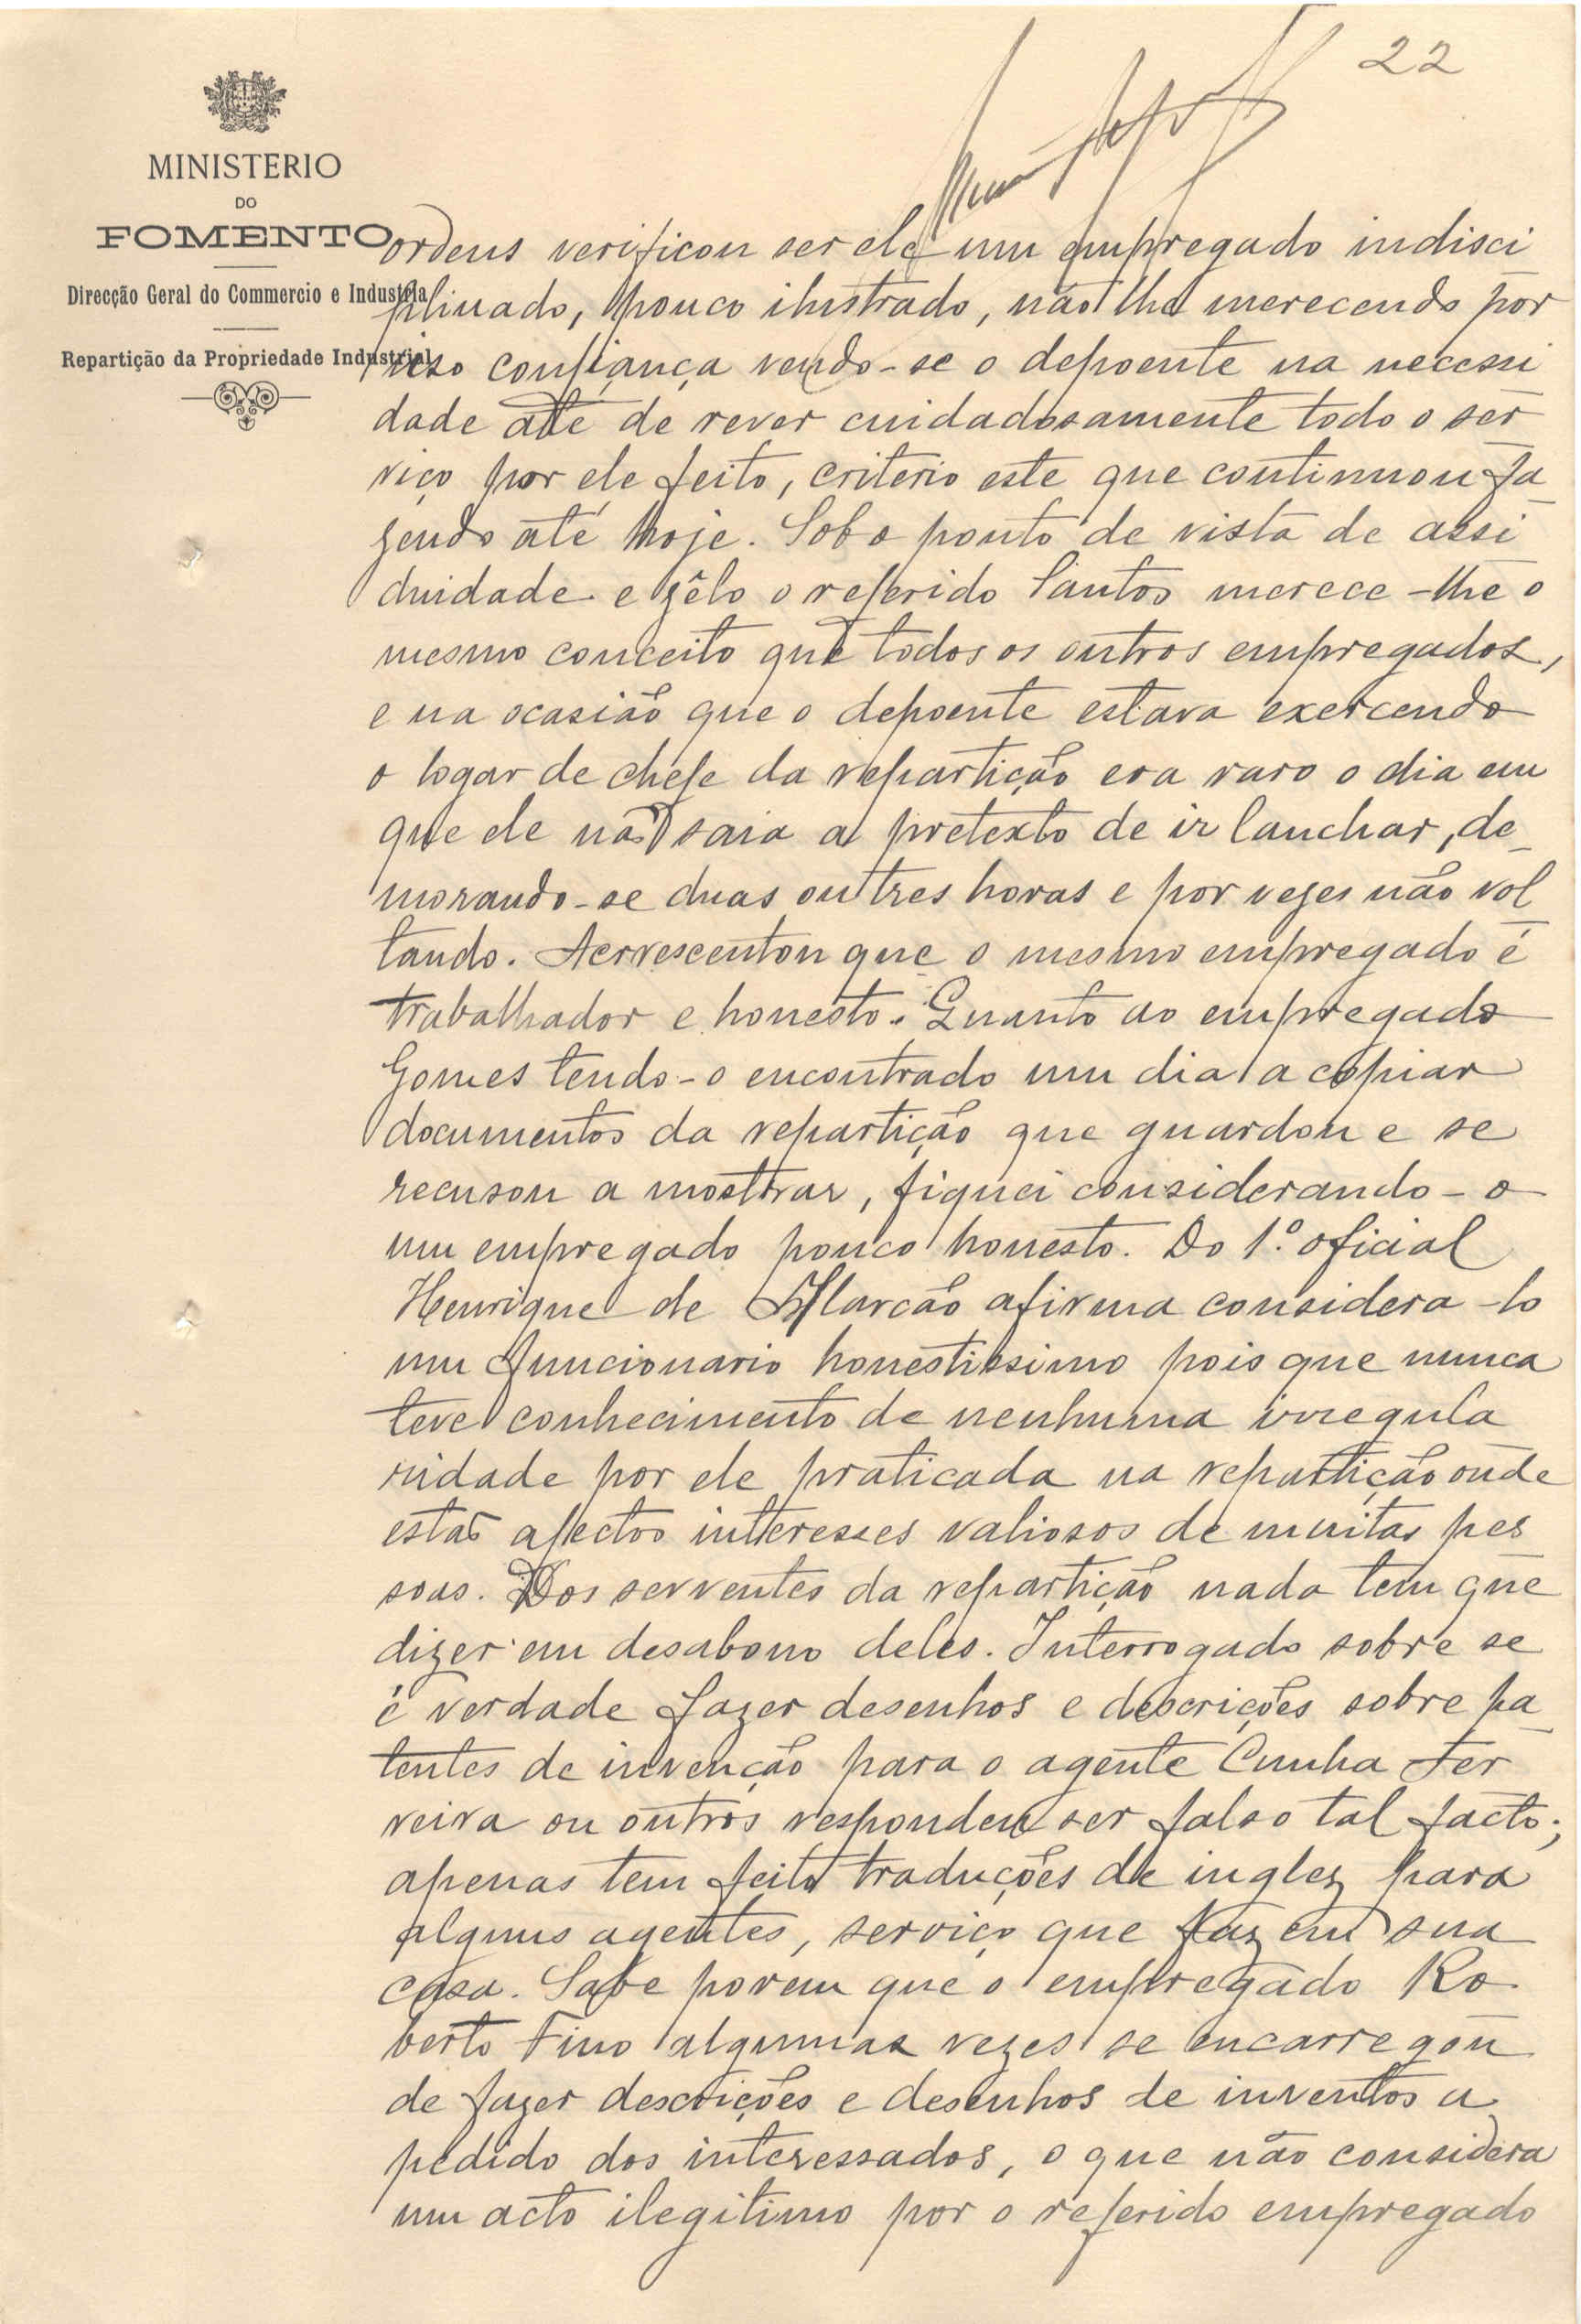 22
MINISTERIO
DO
FOMENTO
Direcção Geral do Commercio e Industria
Repartição da Propriedade Industrial
ordens verificou ser ele um empregado indisci
plinado, pouco ilustrado, não lhe merecendo por
isso confiança vendo-se o depoente na necessi
dade até de rever cuidadosamente todo o ser
viço por ele feito, criterio este que continuou fa
zendo até hoje. Sob o ponto de vista de assi
duidade e zêlo o referido Santos merece-lhe o
mesmo conceito que todos os outros empregados,
e na ocasião que o depoente estava exercendo
o logar de chefe da repartição era raro o dia em
que ele não saia a pretexto de ir lanchar, de_
morando-se duas ou tres horas e por vezes não vol
tando. Acrrescentou que o mesmo empregado é
trabalhador e honesto. Quanto ao empregado
Gomes tendo-o encontrado um dia a copiar
documentos da repartição que guardou e se
recusou a mostrar, fiquei considerando-o
um empregado pouco honesto. Do 1.º oficial
Henrique de Alarcão afirma considera-lo
um funcionario honestissimo pois que nunca
teve conhecimento de nenhuma irregula
ridade por ele praticada na repartição onde
estão afectos interesses valiosos de muitas pes
soas. Dos serventes da repartição nada tem que
dizer em desabono deles. Interrogado sobre se
é verdade fazer desenhos e descrições sobre pa_
tentes de invenção para o agente Cunha Fer
reira ou outros respondeu ser falso tal facto;
apenas tem feito traduções de inglez para
alguns agentes, serviço que faz em sua
casa. Sabe porem que o empregado Ro
berto Fino algumas vezes se encarregou
de fazer descrições e desenhos de inventos a
pedido dos interessados, o que não considera
um acto ilegitimo por o referido empregado